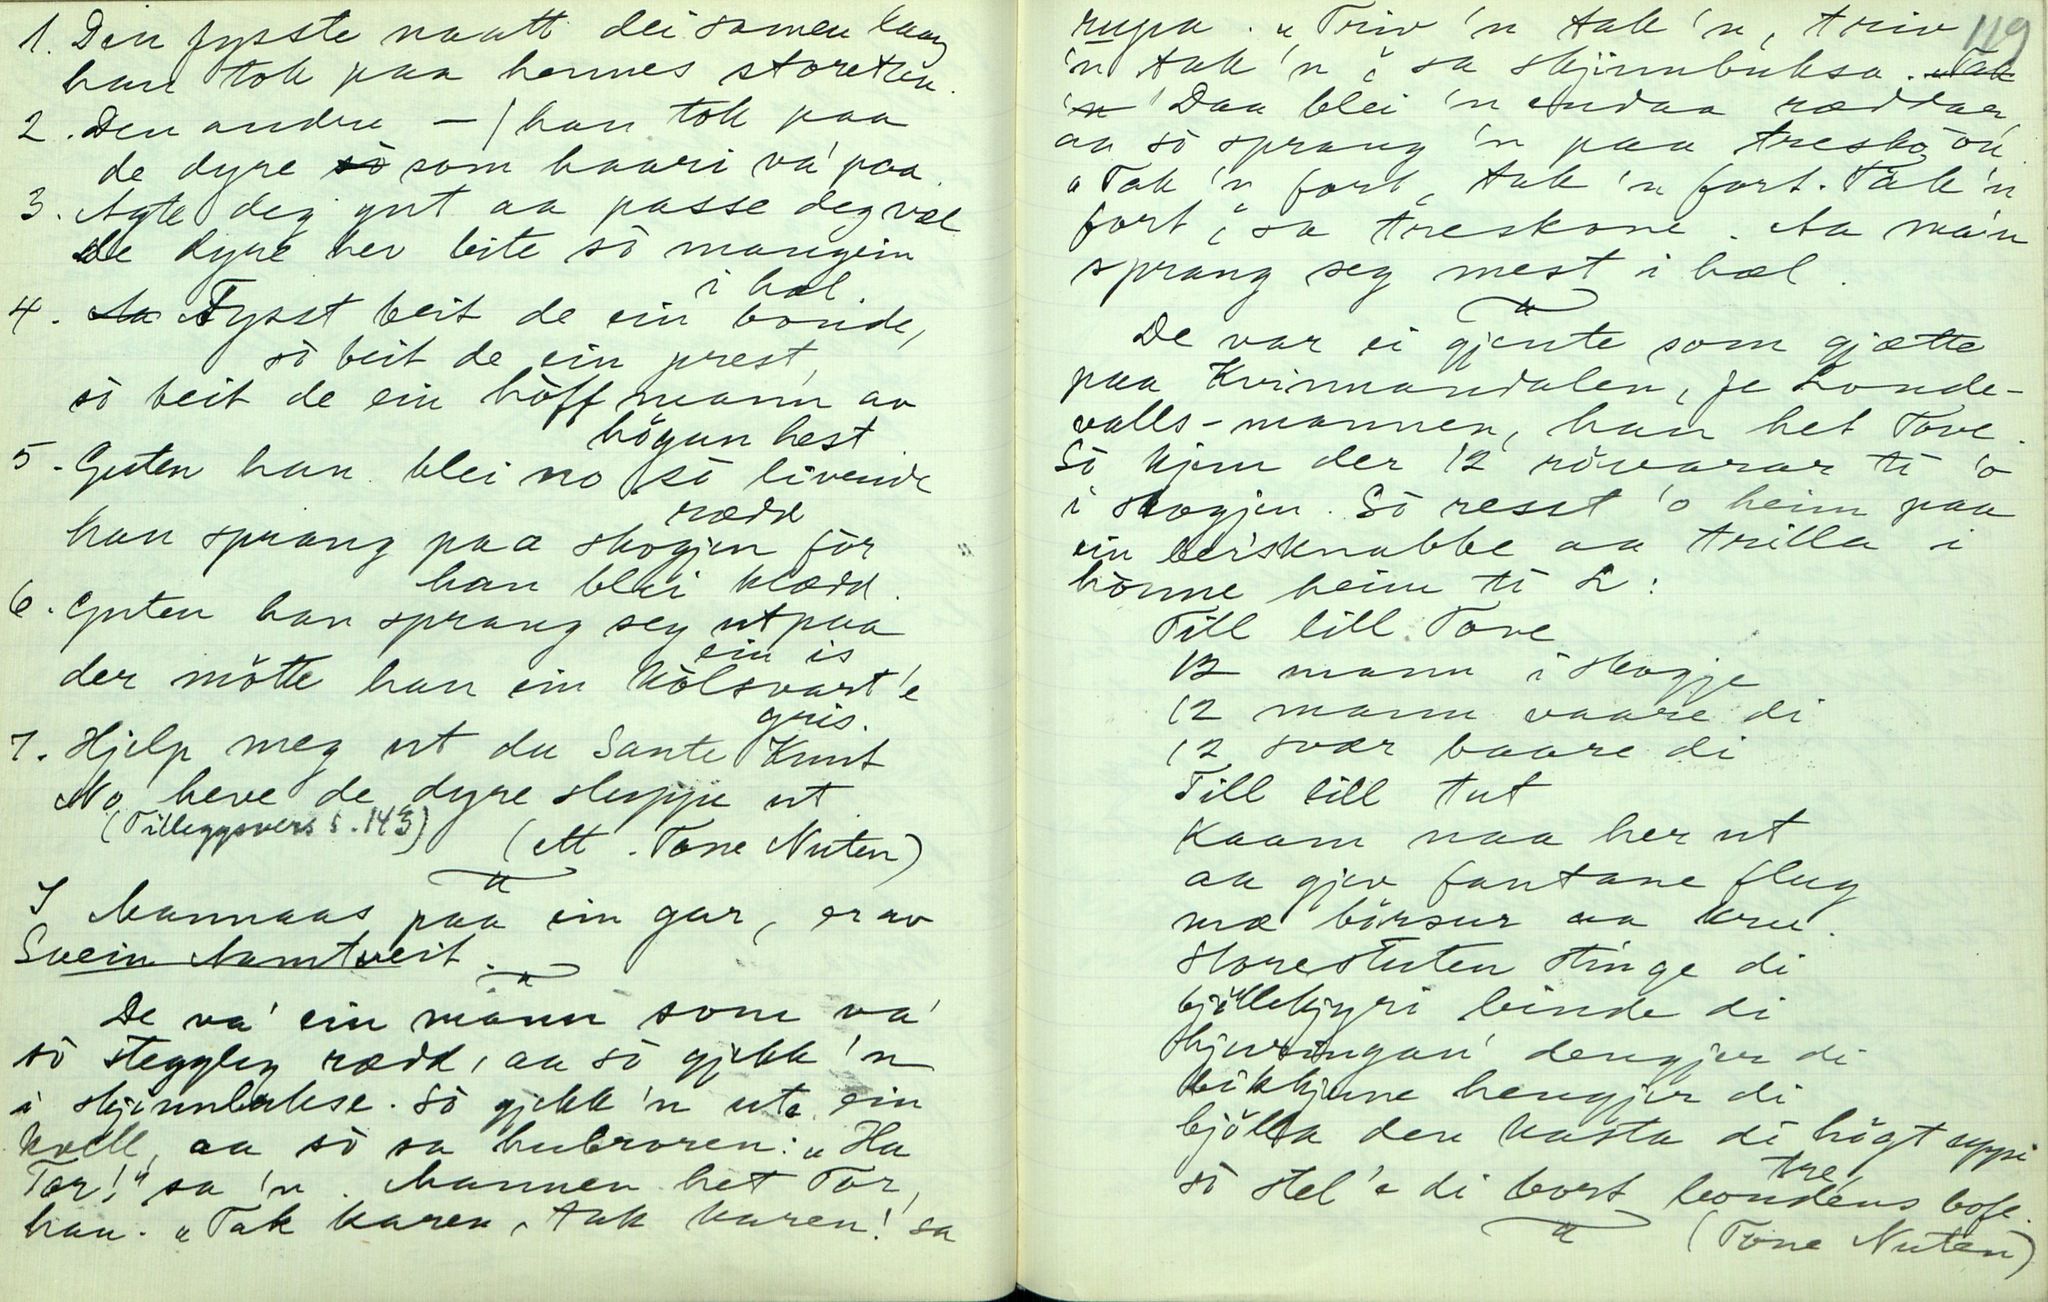 1. Den fysste naatt dei samen laag
han tok paa hennes storetæn.
2. Den andre — / han tok paa
de dyre so som haari va' paa.
3. Agte deg gut aa passe deg væl
de dyre hev bite so mangein
i hæl.
4. Aa Fysst beit de ein bonde,
so beit de ein prest,
so beit de ein höffmann av
högan hest
5. Guten han blei no so livende
rædd
han sprang paa skogjen för
han blei klædd.
6. Guten han sprang seg ut paa
ein is
der mötte han ein kolsvart'e
gris.
7. Hjelp meg ut du Sante Knut
No heve de dyre sleppe ut
(Tilleggsvers s. 143)
(ett. Tone Nuten)
I Mannaas paa ein gar, er av
Svein Namtveit.
De va' ein mann som va'
so steggleg rædd, aa so gjekk 'n
i skjinnbukse. So gjekk 'n ute ein
kvell, aa so sa hubroren: "Ha
Tor!" sa 'n. Mannen het Tor,
han. "Tak karen, tak karen! sa
119
rupa. "Triv 'n tak 'n, triv
'n tak 'n", sa skjinnbuksa. "Tak
'n" Daa blei 'n endaa ræddar,
aa so sprang 'n paa treskoón.
"Tak 'n fort, tak 'n fort. Tak 'n
fort", sa treskone. Aa ma'n
sprang seg mest i hæl.
De var ei gjente som gjætte
paa Kvinnandalen, fe Londe-
valls-mannen, han het Tove.
So kjem der 12 röuvarar ti 'o
i skogjen. So resst 'o heim paa
ein beisknabbe aa trilla i
honne heim ti L:
Till lill Tove
12 mann i skogje
12 mann vaare di
12 svær baare di
Till lill tut
Kaam naa her ut
aa gjev fantane flug
mæ börsur aa kru.
Storestuten stinge di
bjöllekjyri binde di
Skjuringan' dengjer di
bikkjune hengjer di
bjölla den kasta di högt uppi
tre,
so stel'e di bort bondens bofe.
(Tone Nuten)